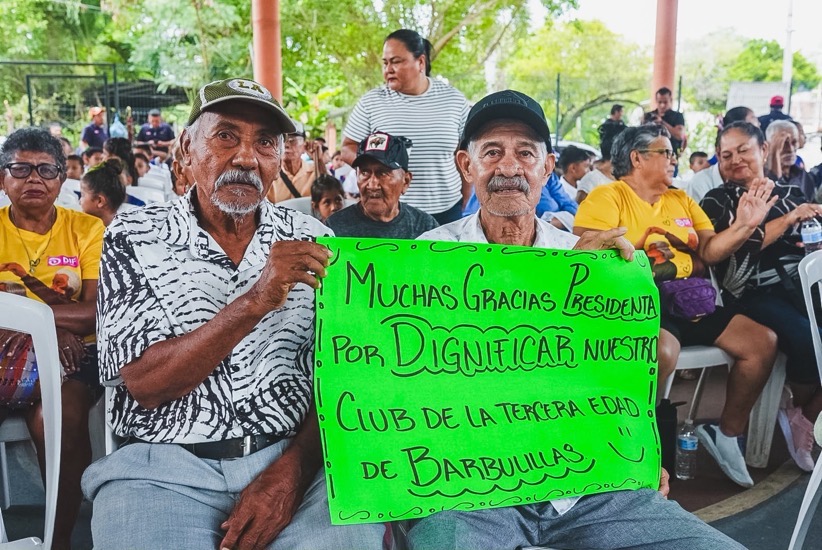 LA
DIF
MUCHAS GRACIAS PRESIDENTA
POR DIGNIFICAR NUESTRO
CLUB DE LA TERCERA EDAD
DE BARBULILLAS